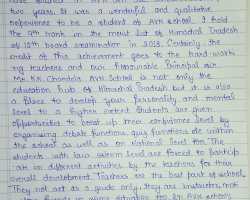 two years. It was a wonderful and qualitative
experience to be a student of AVN school. I hold
the 9th rank in the merit list of Himachal Pradesh
of 10th board examination in 2013. Certainly the
credit of this achievement goes to the hard work
my teachers and our Honourable Principal sir
Mr. K.K. Chandola. AVN School is not only the
education hub of Himachal Pradesh but it is also
a place to develop your personality and mental
level to a higher extent. Students are given
opportunities to boost up their confidence level by
organising debate functions, quiz functions etc within
the school as well as on National level too. The
students with low esteem level are forced to participate
in different activities by the teachers for their
overall development. Teachers are the best part of school.
They not act as a guide only, they are instructors, not